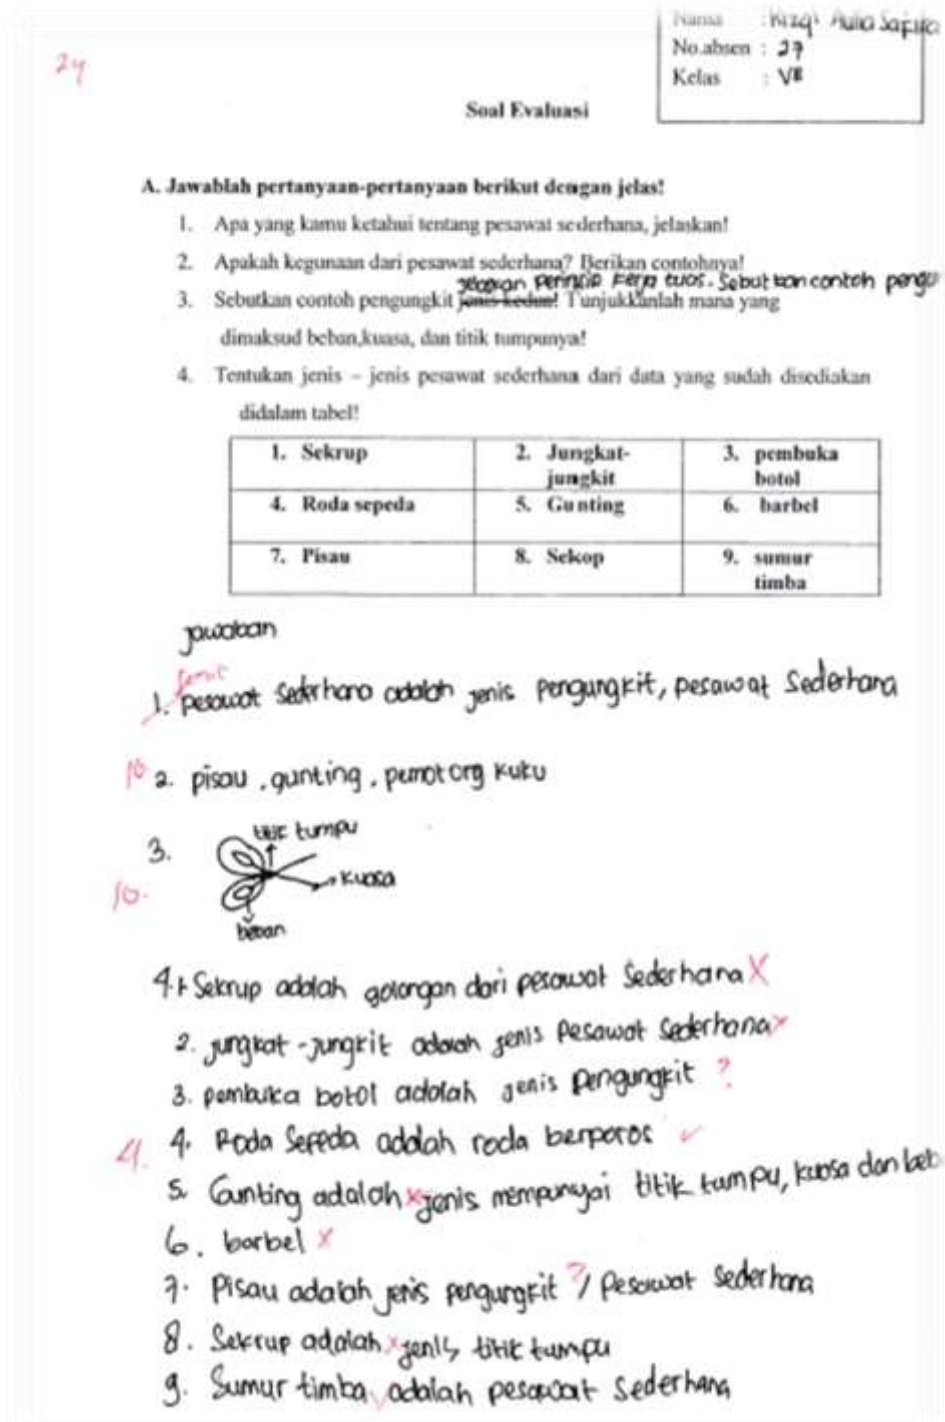 24
Nama : Rizqi Aulia Safira
No.absen : 27
Kelas : VII
Soal Evaluasi
A. Jawablah pertanyaan-pertanyaan berikut dengan jelas!
1. Apa yang kamu ketahui tentang pesawat sederhana, jelaskan!
2. Apakah kegunaan dari pesawat sederhana? Berikan contohnya!
kerja tuas. Sebutkan contoh pengu
3. Sebutkan contoh pengungkit jenis kedua! Tunjukkanlah mana yang
dimaksud beban,kuasa, dan titik tumpunya!
4. Tentukan jenis – jenis pesawat sederhana dari data yang sudah disediakan
didalam tabel!
1. Sekrup 2. Jungkat-jungkit 3. pembuka botol
4. Roda sepeda 5. Gunting 6. barbel
7. Pisau 8. Sekop 9. sumur timba
jawaban
1. pesawat Sederhana adalah jenis pengungkit, pesawat Sederhana
10 2. pisau, gunting, pemotong kuku
titik tumpu
3.
kuasa
10.
beban
4.1 Sekrup adalah golongan dari pesawat Sederhana X
2. jungkat-jungkit adalah jenis Pesawat Sederhana x
3. pembuka botol adalah jenis pengungkit ?
4. 4. Roda Sepeda adalah roda berporos ✓
5. Gunting adalah x jenis mempunyai titik tumpu, kuasa dan beb
6. barbel x
7. Pisau adalah jenis pengungkit ? / Pesawat Sederhana
8. Sekrup adalah x jenis titik tumpu
9. Sumur timba adalah pesawat Sederhana